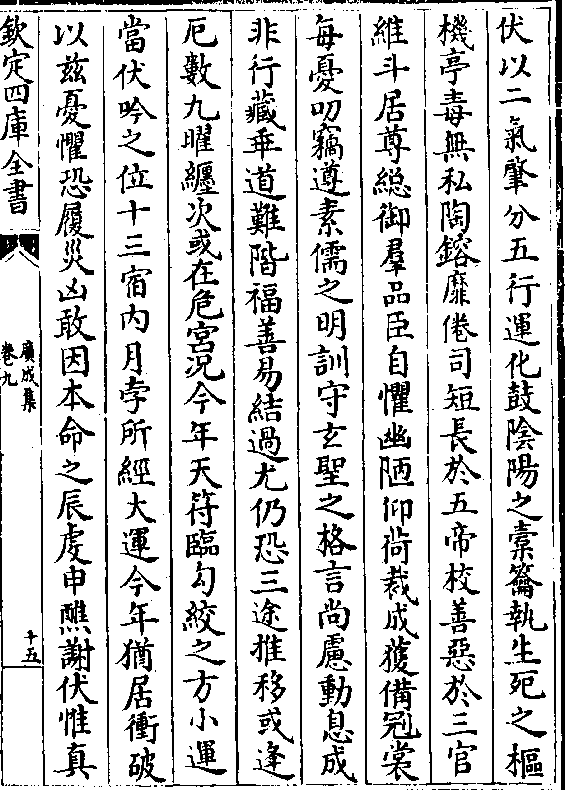 伏以二氣肇分五行運化鼓陰陽之橐籥執生死之樞
機亭毒無私陶鎔靡倦司短長於五帝校善惡於三官
維斗居尊總御羣品臣自懼幽陋仰荷裁成獲備冠裳
每憂叨竊遵素儒之明訓守玄聖之格言尚慮動息成
非行藏乖道難階福善易結過尤仍恐三途推移或逢
厄數九曜纏次或在危宮况今年天符臨勾絞之方小運
當伏吟之位十三宿内月孛所經大運今年猶居衝破
以兹憂懼恐履災凶敢因本命之辰虔申醮謝伏惟真
欽定四庫全書
廣成集
卷九
十五